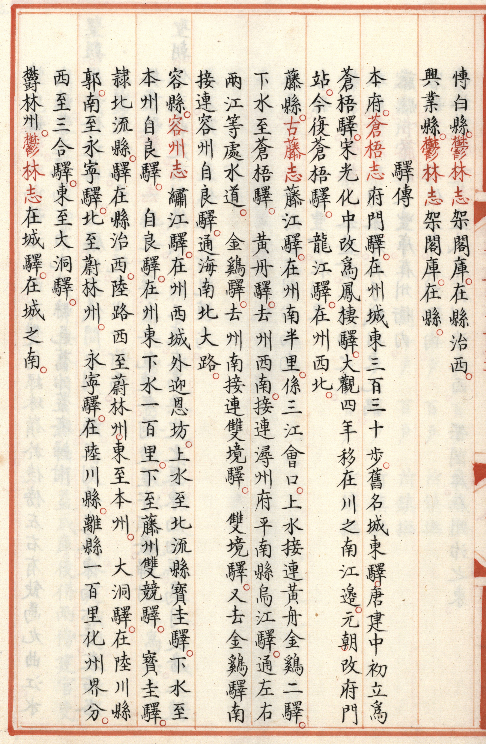 博白縣鬱林志架閣庫在縣治西
興業縣鬱林志架閣庫在縣
驛傳
本府蒼梧志府門驛在州城東三百三十步舊名城東驛唐建中初立爲
蒼梧驛宋光化中改爲鳳棲驛大觀四年移在川之南江邊元朝改府門
站今復蒼梧驛 龍江驛在州西北
藤縣古藤志藤江驛在州南半里係三江會口上水接連黃舟金鷄二驛
下水至蒼梧驛 黃舟驛去州西南接連潯州府平南縣烏江驛通左右
兩江等處水道 金鷄驛去州南接連雙境驛 雙境驛又去金鷄驛南
接連容州自良驛通海南北大路
容縣容州志繡江驛在州西城外迎恩坊上水至北流縣寶圭驛下水至
本州自良驛 自良驛在州東下水一百里下至藤州雙競驛 寶圭驛
隷北流縣驛在縣治西陸路西至蔚林州東至本州 大洞驛在陸川縣
郭南至永寧驛北至蔚林州 永寧驛在陸川縣離縣一百里化州界分
西至三合驛東至大洞驛
欝林州鬱林志在城驛在城之南